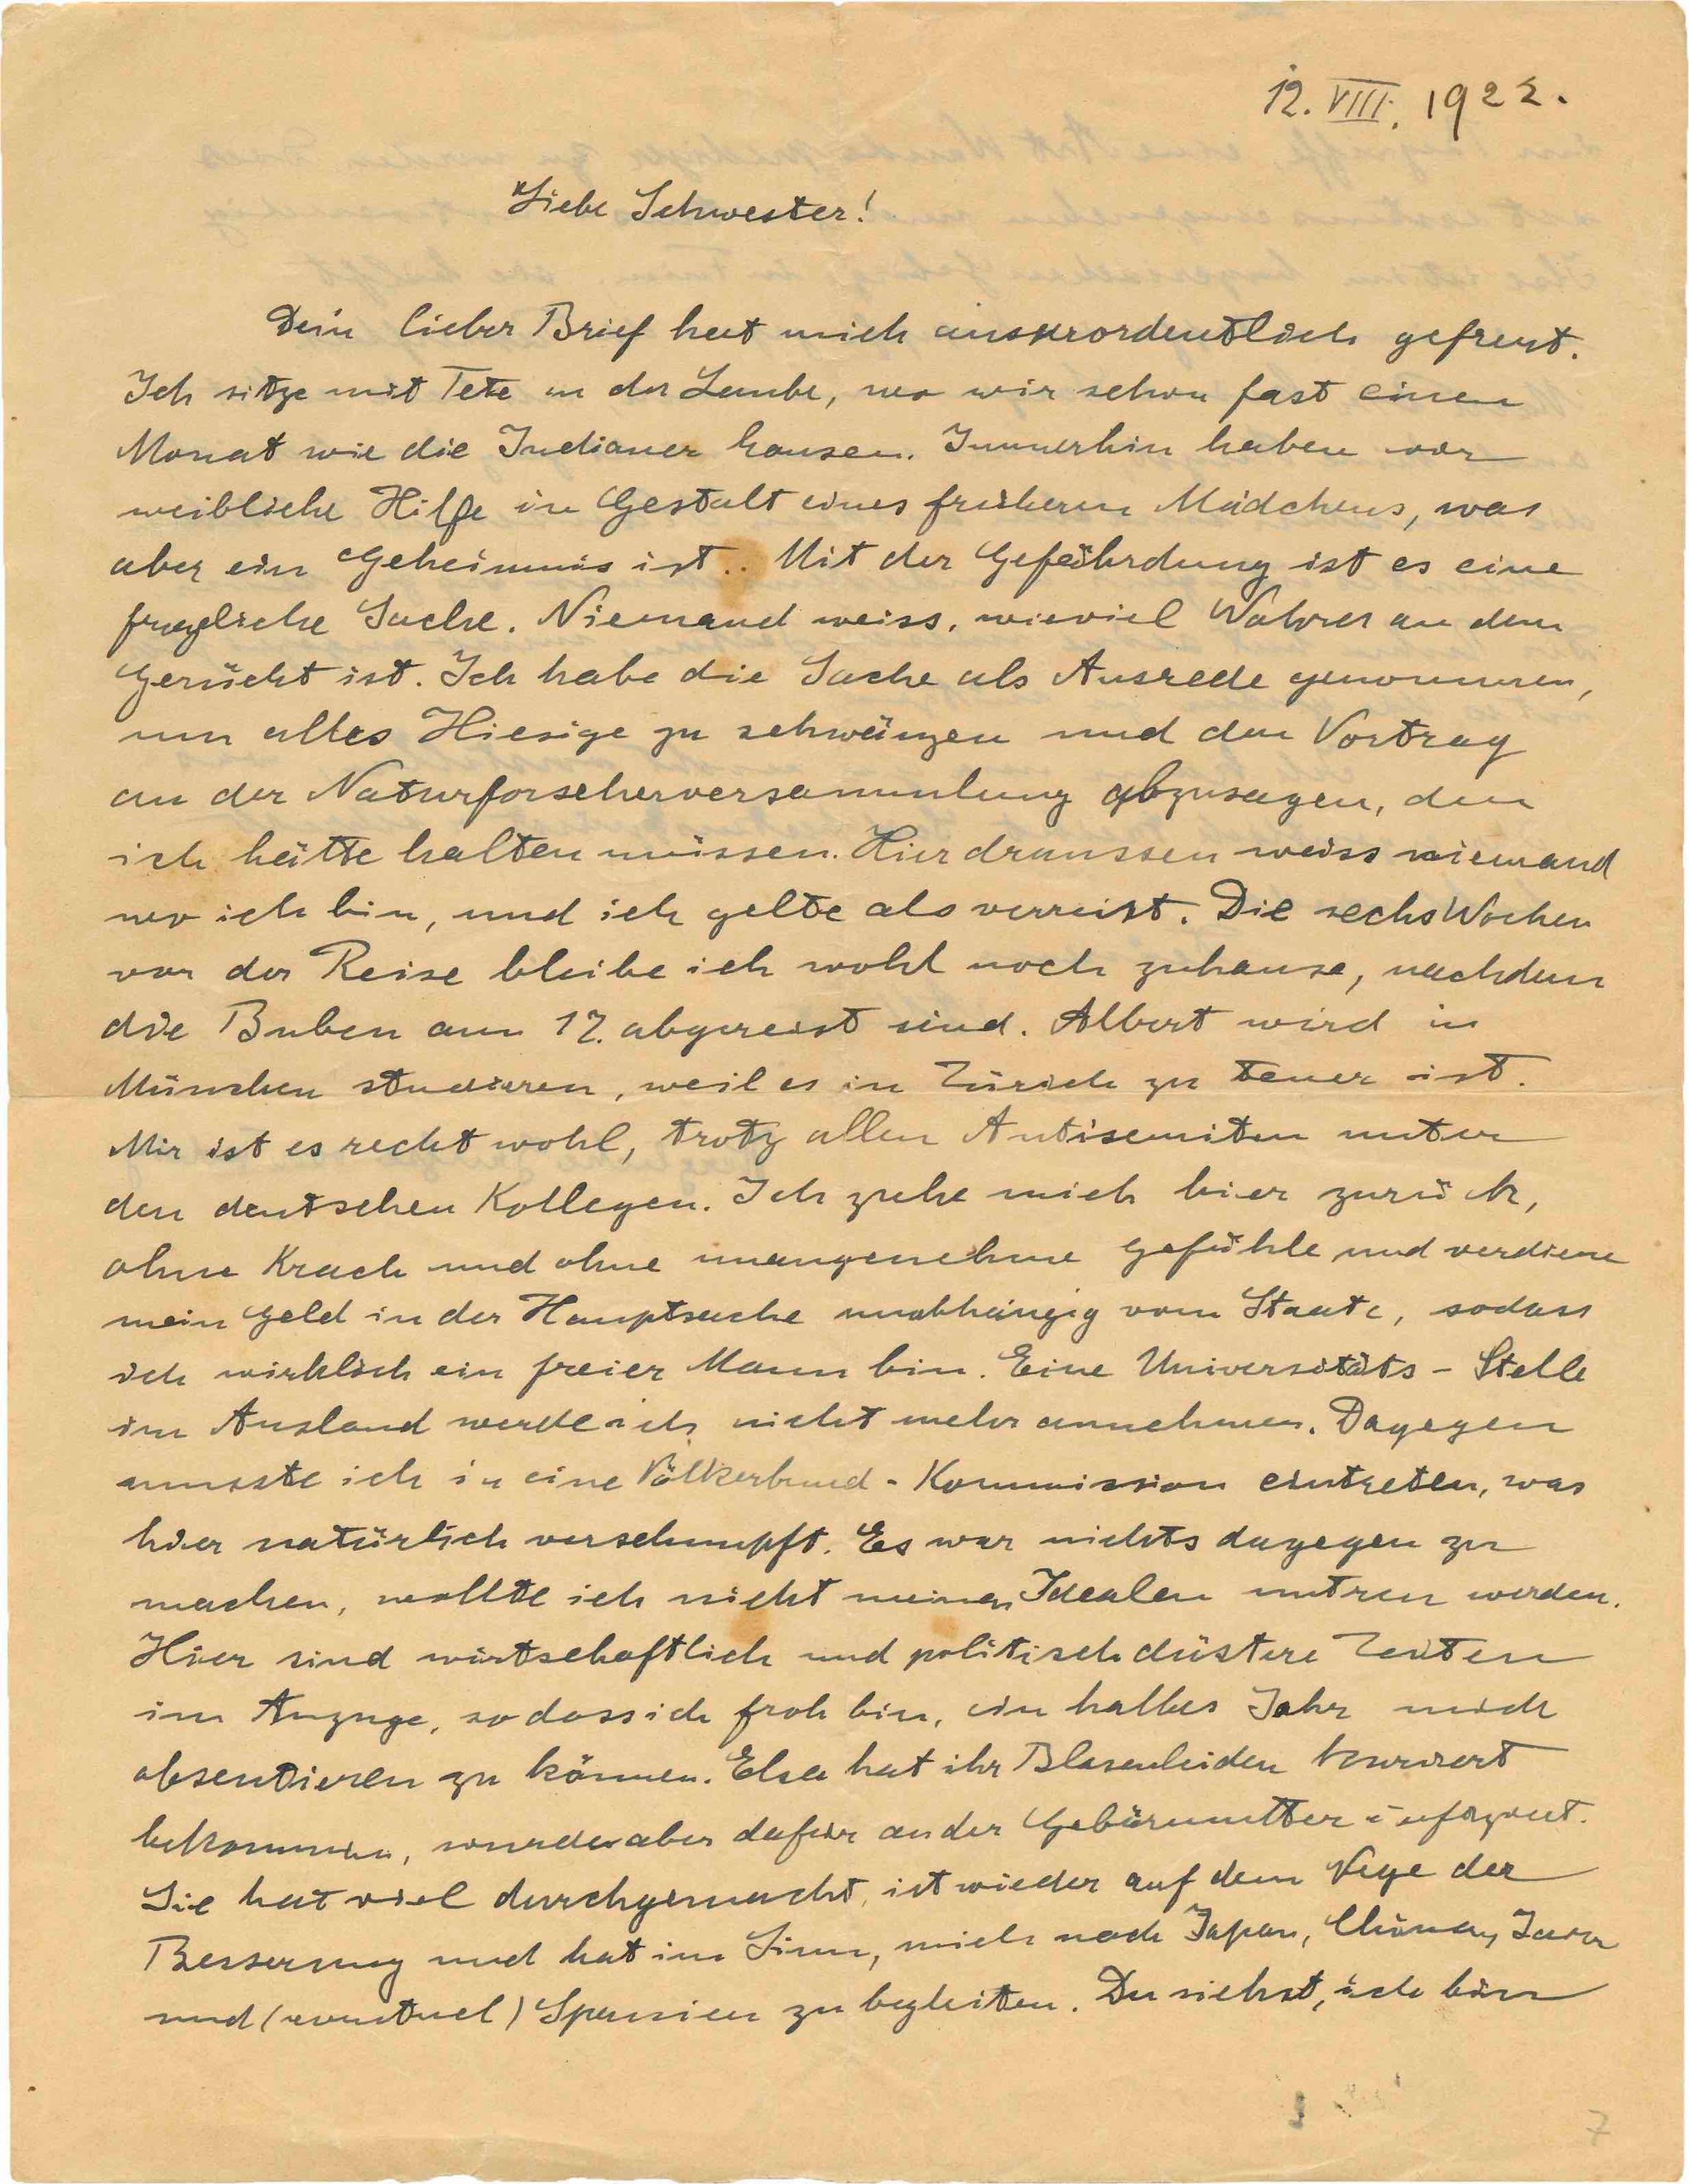 12. VIII. 1922.
Liebe Schwester!
Dein lieber Brief hat mich ausserordentlich gefreut.
Ich sitze mit Tete in der Laube, wo wir schon fast einen
Monat wie die Indianer hausen. Immerhin haben wir
weibliche Hilfe in Gestalt eines früheren Mädchens, was
aber ein Geheimnis ist. Mit der Gefährdung ist es eine
fragliche Sache. Niemand weiss, wieviel Wahres an dem
Gerücht ist. Ich habe die Sache als Ausrede genommen,
um alles Hiesige zu schwänzen und den Vortrag
an der Naturforscherversammlung abzusagen, den
ich hätte halten müssen. Hier draussen weiss niemand
wo ich bin, und ich gelte als verreist. Die sechs Wochen
vor der Reise bleibe ich wohl noch zuhause, nachdem
die Buben am 17. abgereist sind. Albert wird in
München studieren, weil es in Zürich zu teuer ist.
Mir ist es recht wohl, trotz allen Antisemiten unter
den deutschen Kollegen. Ich ziehe mich hier zurück,
ohne Krach und ohne unangenehme Gefühle und verdiene
mein Geld in der Hauptsache unabhängig vom Staate, sodass
ich wirklich ein freier Mann bin. Eine Universitäts - Stelle
im Ausland werde ich nicht mehr annehmen. Dagegen
musste ich in eine Völkerbund - Kommission eintreten, was
hier natürlich verschnupft. Es war nichts dagegen zu
machen, wollte ich nicht meinen Idealen untreu werden.
Hier sind wirtschaftlich und politisch düstere Zeiten
im Anzuge, sodass ich froh bin, ein halbes Jahr mich
absentieren zu können. Elsa hat ihr Blasenleiden kouriert
bekommen, wurde aber dafür an der Gebärmutter infiziert.
Sie hat viel durchgemacht, ist wieder auf dem Wege der
Besserung und hat im Sinn, mich nach Japan, China, Java
und (eventuel) Spanien zu begleiten. Du siehst, ich bin
7